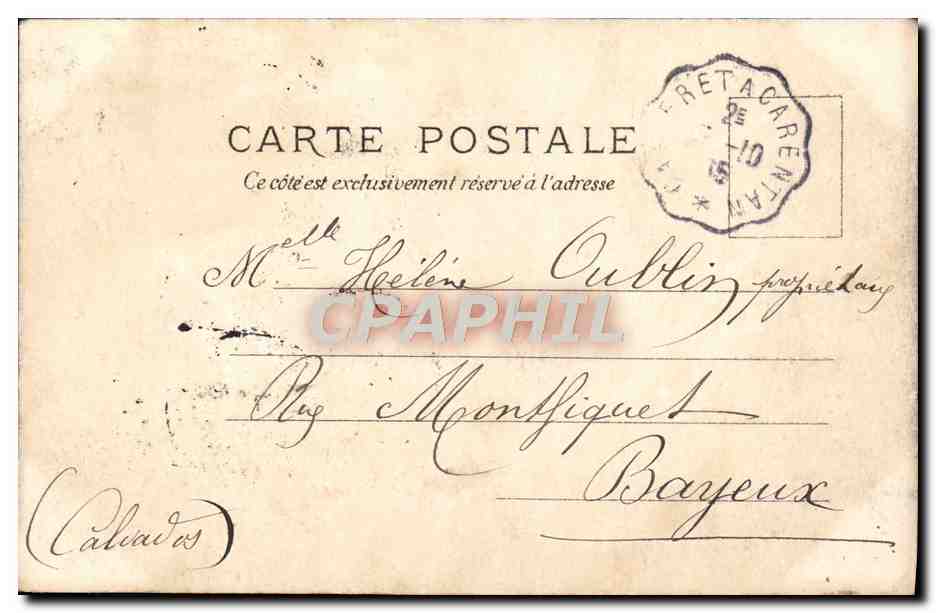 CARTE POSTALE
Ce côté est exclusivement réservé à l'adresse
ERET A CARENTAN *
2E
-10
Melle Hélène Oublin propriétaire
CPAPHIL
Rue Montfiquet
Bayeux
(Calvados)